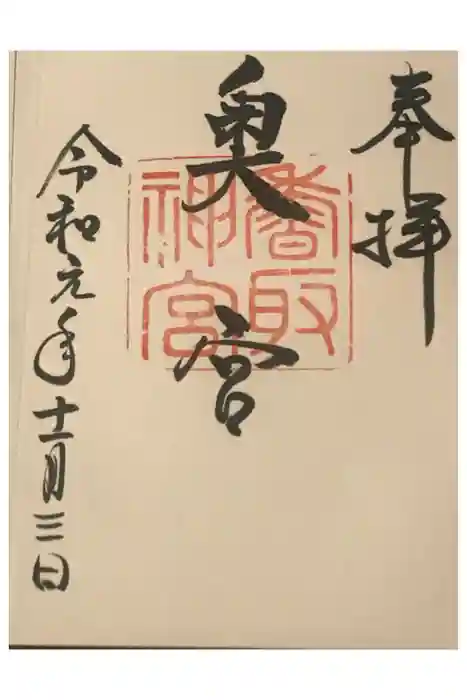 奉拝
奥宮
香取神宮
令和元年十一月三日